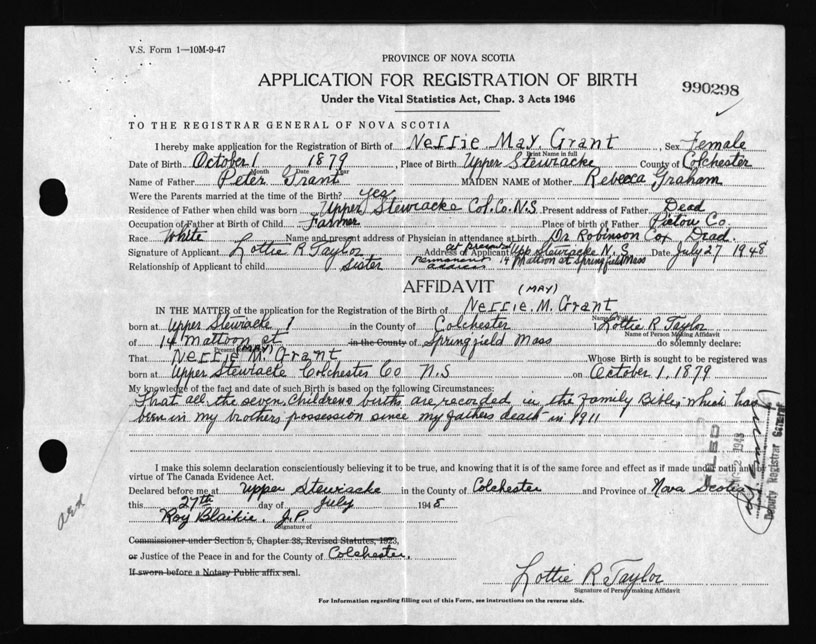 V.S. Form 1—10M-9-47
PROVINCE OF NOVA SCOTIA
APPLICATION FOR REGISTRATION OF BIRTH
990298
Under the Vital Statistics Act, Chap. 3 Acts 1946
TO THE REGISTRAR GENERAL OF NOVA SCOTIA
I hereby make application for the Registration of Birth of Nessie May. Grant, Sex Female
Print Name in full
Date of Birth October 1 1879, Place of Birth Upper Stewiacke County of Colchester
Month Date Year
Name of Father Peter Grant MAIDEN NAME of Mother Rebecca Graham
Were the Parents married at the time of the Birth? yes
Residence of Father when child was born Upper Stewiacke Col. Co. N.S. Present address of Father Dead
Occupation of Father at Birth of Child Farmer Place of birth of Father Pictou Co.
Race White Name and present address of Physician in attendance at birth Dr Robinson Cox Dead.
Signature of Applicant Lottie R Taylor Address of Applicant at present Upp Stewiacke N.S. Date July 27 1948
Relationship of Applicant to child Sister Permanent address 14 Mattoon st Springfield Mass
AFFIDAVIT (MAY)
IN THE MATTER of the application for the Registration of Birth of Nessie. M. Grant
Name in Full
born at Upper Stewiacke 1 in the County of Colchester I Lottie R Taylor
Name of Person Making Affidavit
of 14 Mattoon st in the County of Springfield Mass do solemnly declare:
(MAY)
That Nessie M. Grant Whose Birth is sought to be registered was
born at Upper Stewiacke Colchester Co N.S on October 1, 1879
My knowledge of the fact and date of such Birth is based on the following Circumstances:
That all the seven childrens births are recorded in the Family Bible which has
been in my brothers possession since my fathers death in 1911
I make this solemn declaration conscientiously believing it to be true, and knowing that it is of the same force and effect as if made under oath by
virtue of The Canada Evidence Act.
Declared before me at Upper Stewiacke in the County of Colchester and Province of Nova Scotia
this 27th day of July 1948
Roy Blaikie. J.P.
Signature of
Commissioner under Section 5, Chapter 38, Revised Statutes, 1923,
or Justice of the Peace in and for the County of Colchester.
If sworn before a Notary Public affix seal.
Lottie R Taylor
Signature of Person making Affidavit
For Information regarding filling out of this Form, see instructions on the reverse side.
FILED
1948
Deputy Registrar General